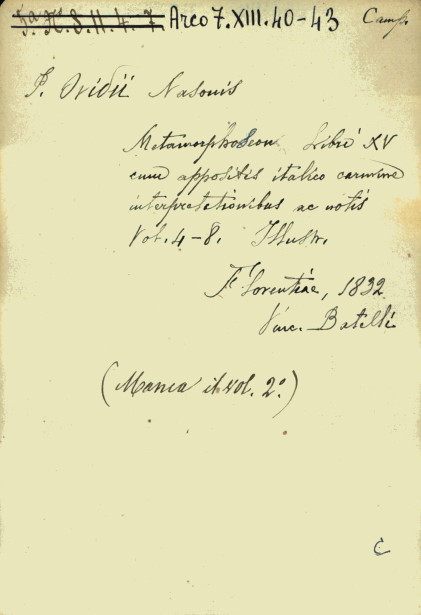 Arco 7. XIII. 40-43
P. Ovidii Nasonis
Metamorphoseon Libri XV
cum appositis italico carmine
interpretationibus ac notis
Vol. 4-8. Illustr.
Florentiae, 1832
Vinc. Batelli
(Manca il vol. 2°.)
C